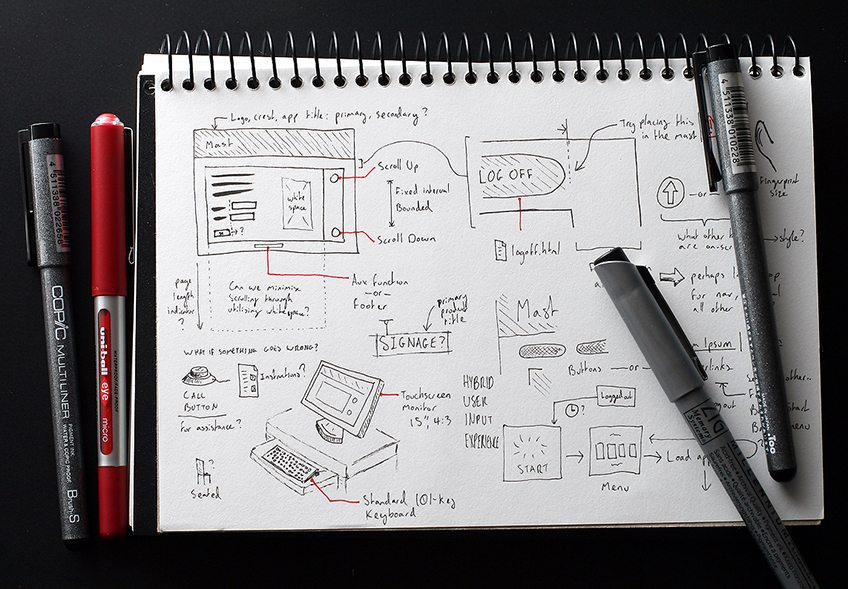 Logo, crest, app title: primary, secondary?
Mast
Scroll Up
Fixed interval
Bounded
white
space
?
Scroll Down
page
length
indicator
?
Can we minimise
scrolling through
utilising whitespace?
Aux Function
—or—
Footer
LOG OFF
Try placing this
in the mast
logoff.html
—or—
Fingerprint
size
what other
are on-scr
style?
perhaps
For nav,
all other
primary
product
title
SIGNAGE?
Mast
Buttons —or—
Ipsum
WHAT IF SOMETHING GOES WRONG?
CALL
BUTTON
Instructions?
For assistance?
?
Seated
Touchscreen
monitor
15", 4:3
Standard 101-key
Keyboard
HYBRID
USER
INPUT
EXPERIENCE
Logged out
?
START
Menu
Load
Menu
COPIC MULTILINER
PIGMENT INK
WATER & COPIC PROOF
Brush S
4 511338 012658
uni-ball
eye
micro
WATERPROOF/FADE-PROOF
4 511338 010228
Too
Memory
System